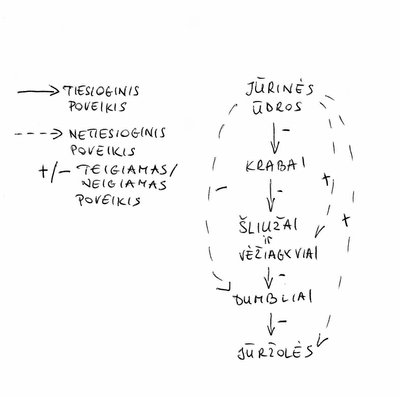 TIESIOGINIS
POVEIKIS
NETIESIOGINIS
POVEIKIS
+/- TEIGIAMAS/
NEIGIAMAS
POVEIKIS
JŪRINĖS
ŪDROS
-
KRABAI
-
-
+
+
ŠLIUŽAI
ir
VĖŽIAGYVIAI
-
DUMBLIAI
-
JŪRŽOLĖS